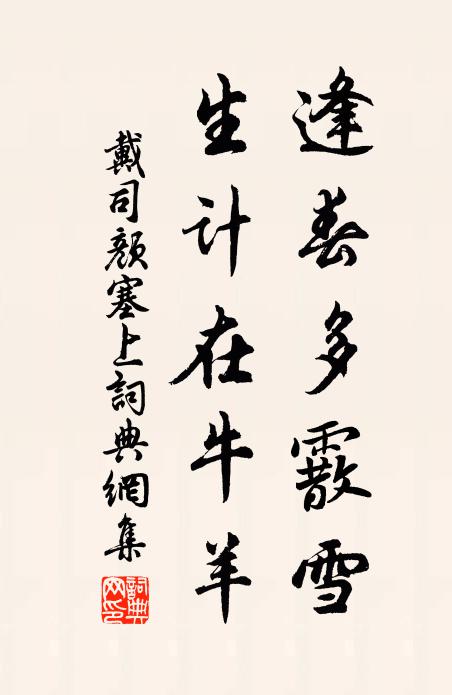 逢春多霰雪
生计在牛羊
戴司颜塞上詞典網集
詞典网印